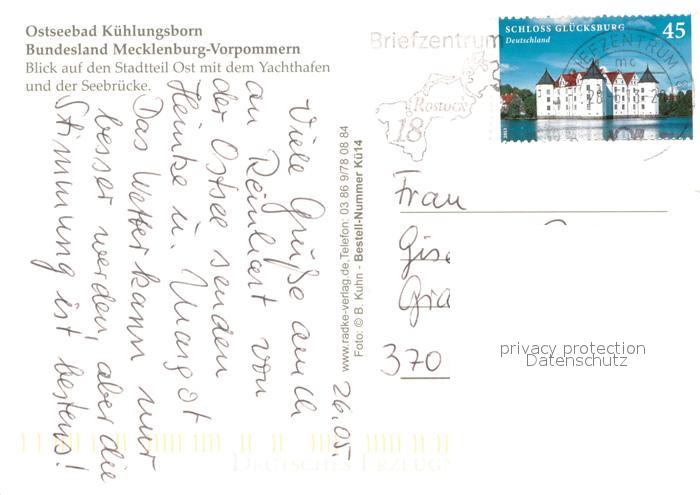 Ostseebad Kühlungsborn
Bundesland Mecklenburg-Vorpommern
Blick auf den Stadtteil Ost mit dem Yachthafen
und der Seebrücke.
Viele Grüße auch
an Reinhart von
der Ostsee senden
Heinke u. Margot
Das Wetter kann nur
besser werden, aber die
Stimmung ist bestens!
26.05.
www.radke-verlag.de, Telefon: 03 86 9/78 08 84
Foto: © B. Kuhn - Bestell-Nummer Kü14
Briefzentrum
Rostock
18
SCHLOSS GLÜCKSBURG 45
Deutschland
2013
BRIEFZENTRUM 18
mc
Frau
Gise
Gra
370
privacy protection
Datenschutz
DEUTSCHES ERZEUG